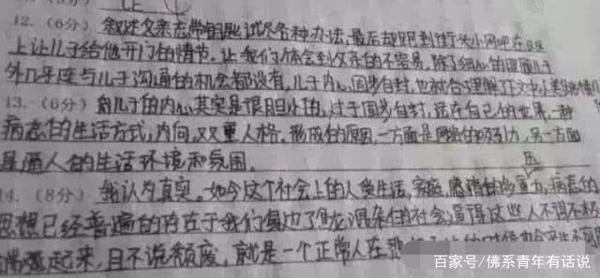 12.（6分）叙述父亲忐带钥匙试尽各种办法，最后却跑到街头小网吧在
上让儿子给他开门的情节，让我们体会到父亲的不容易，除了细心的照顾儿子
外几乎连与儿子沟通的机会都没有，儿子内心固步自封，也就合理解了文中
13.（6分）的儿子的内心其实是很胆小的，过于固步自封，活在自己的世界，一种
病态的生活方式，内向，双重人格。形成的原因，一方面是网络的吸引力，另一方面
是逼人的生活环境和氛围。
14.（8分）我认为真实。如今这个社会上的人受生活，家庭，感情的多重力，病态的
思想已经普遍的存在于我们身边了，混杂的社会逼得这些人不得不
起来，且不说颓废，就是一个正常人在
百家号/佛系青年有话说